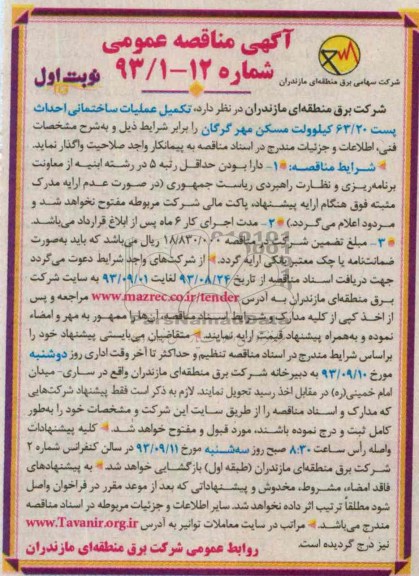 آگهی مناقصه عمومی
شماره ۱۲-۹۳/۱
نوبت اول
شرکت سهامی برق منطقه‌ای مازندران
شرکت برق منطقه‌ای مازندران در نظر دارد، تکمیل عملیات ساختمانی احداث
پست ۶۳/۲۰ کیلوولت مسکن مهر گرگان را برابر شرایط ذیل و به‌شرح مشخصات
فنی، اطلاعات و جزئیات مندرج در اسناد مناقصه به پیمانکار واجد صلاحیت واگذار نماید.
شرایط مناقصه: ۱- دارا بودن حداقل رتبه ۵ در رشته ابنیه از معاونت
برنامه‌ریزی و نظارت راهبردی ریاست جمهوری (در صورت عدم ارایه مدرک
مثبته فوق هنگام ارایه پیشنهاد، پاکت مالی شرکت مربوطه مفتوح نخواهد شد و
مردود اعلام می‌گردد.) ۲- مدت اجرای کار ۶ ماه پس از ابلاغ قرارداد می‌باشد.
۳- مبلغ تضمین شرکت در مناقصه ریال می‌باشد که باید به‌صورت
ضمانت‌نامه یا چک معتبر بانکی ارایه گردد. از شرکت‌های واجد شرایط دعوت می‌گردد
جهت دریافت اسناد مناقصه از تاریخ ۹۳/۰۸/۲۴ لغایت ۹۳/۰۹/۰۱ به سایت شرکت
برق منطقه‌ای مازندران به آدرس www.mazrec.co.ir/tender مراجعه و پس
از اخذ کپی از کلیه مدارک و شرایط اسناد مناقصه آن‌ها را ممهور به مهر و امضاء
نموده و به‌همراه پیشنهاد قیمت ارایه نمایند. متقاضیان می‌بایستی پیشنهاد خود را
براساس شرایط مندرج در اسناد مناقصه تنظیم و حداکثر تا آخر وقت اداری روز دوشنبه
مورخ ۹۳/۰۹/۱۰ به دبیرخانه شرکت برق منطقه‌ای مازندران واقع در ساری- میدان
امام خمینی(ره) در مقابل اخذ رسید تحویل نمایند. لازم به ذکر است فقط پیشنهاد شرکت‌هایی
که مدارک و اسناد مناقصه را از طریق سایت این شرکت و مشخصات خود را به‌طور
کامل ثبت و درج نموده باشند، مورد قبول و مفتوح خواهد شد. کلیه پیشنهادات
واصله رأس ساعت ۸:۳۰ صبح روز سه‌شنبه مورخ ۹۳/۰۹/۱۱ در سالن کنفرانس شماره ۲
شرکت برق منطقه‌ای مازندران (طبقه اول) بازگشایی خواهد شد. به پیشنهادهای
فاقد امضاء، مشروط، مخدوش و پیشنهاداتی که بعد از موعد مقرر در فراخوان واصل
شود مطلقاً ترتیب اثر داده نخواهد شد. سایر اطلاعات و جزئیات مربوطه در اسناد مناقصه
مندرج می‌باشد. مراتب در سایت معاملات توانیر به آدرس www.Tavanir.org.ir
نیز درج گردیده است.
روابط عمومی شرکت برق منطقه‌ای مازندران